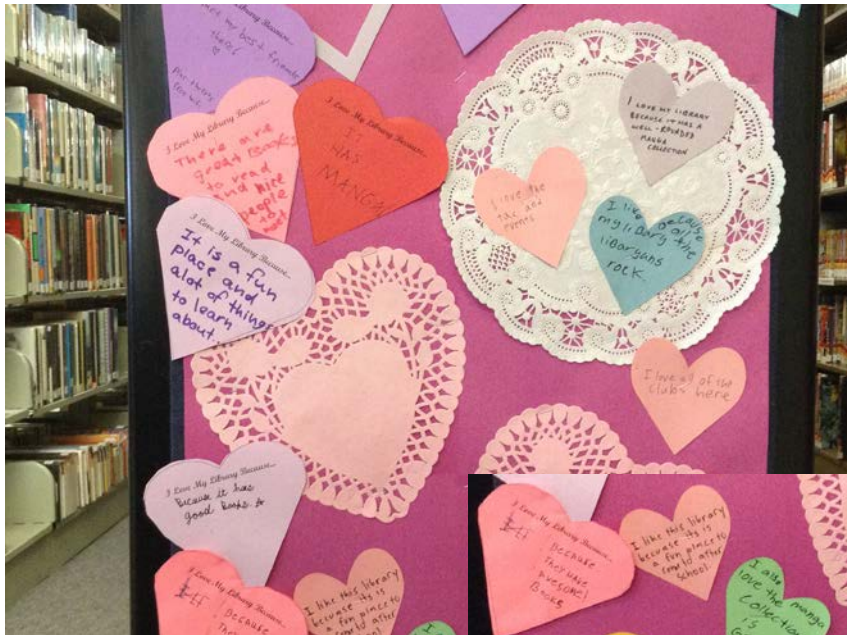 my best friends
there
I Love My Library Because...
There are
great Books
to read
and nice
people
to
meet
I Love My Library Because...
IT
HAS
MANGA
I LOVE MY LIBRARY
BECAUSE IT HAS A
WELL-ROUNDED
MANGA
COLLECTION
I love the
tac and
events
I like because
my libary all
the
libaryuns
rock
I Love My Library Because...
It is a fun
place and
alot of things
to learn
about.
I love all of the
clubs here
I Love My Library Because...
Because it has
good Books
I Love My Library Because...
Because
I like this library
because its is
a fun place to
come to after
I Love My Library Because...
Because
They have
awesome!
Books
I like this library
because its is
a fun place to
come to after
school.
I also
love the manga
collection
is